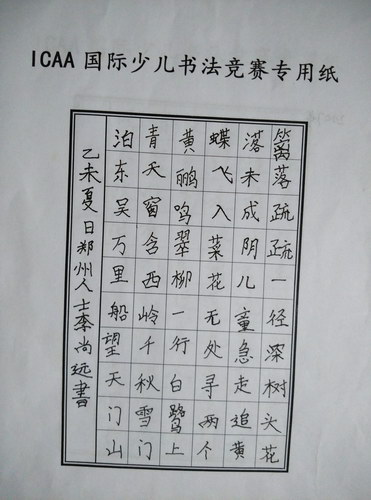 ICAA国际少儿书法竞赛专用纸
篱落疏疏一径深树头花
落未成阴儿童急走追黄
蝶飞入菜花无处寻两个
黄鹂鸣翠柳一行白鹭上
青天窗含西岭千秋雪门
泊东吴万里船望天门山
乙未夏日郑州人士李尚远書